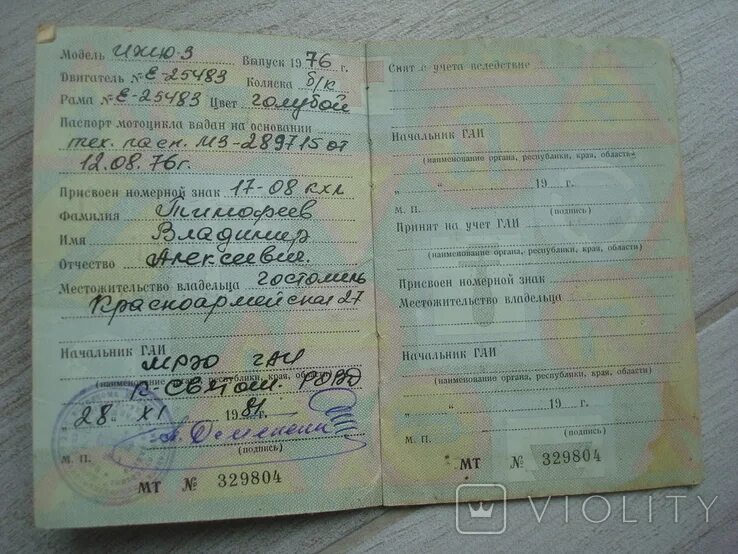 Модель ИЖЮ-3 Выпуск 1976 г.
Двигатель № Е-25483 Коляска б/к
Рама № Е-25483 Цвет голубой
Паспорт мотоцикла выдан на основании
тех. пасп. МЗ-289715 от
12.08.76 г.
Присвоен номерной знак 17-08 кхл
Фамилия Тимофеев
Имя Владимир
Отчество Алексеевич
Местожительство владельца Гостомель
Красноармейская 27
Начальник ГАИ МРЭО ГАИ
(наименование республики, края, области)
г. Святош. РОВД
„ 28 " XI 1981 г.
(подпись)
М. П.
МТ № 329804
Снят с учета вследствие
Начальник ГАИ
(наименование органа, республики, края, области)
„ " 19 г.
М. П. (подпись)
Принят на учет ГАИ
(наименование органа, республики, края, области)
Присвоен номерной знак
Местожительство владельца
Начальник ГАИ
(наименование органа, республики, края, области)
„ " 19 г.
М. П. (подпись)
МТ № 329804
VIOLITY